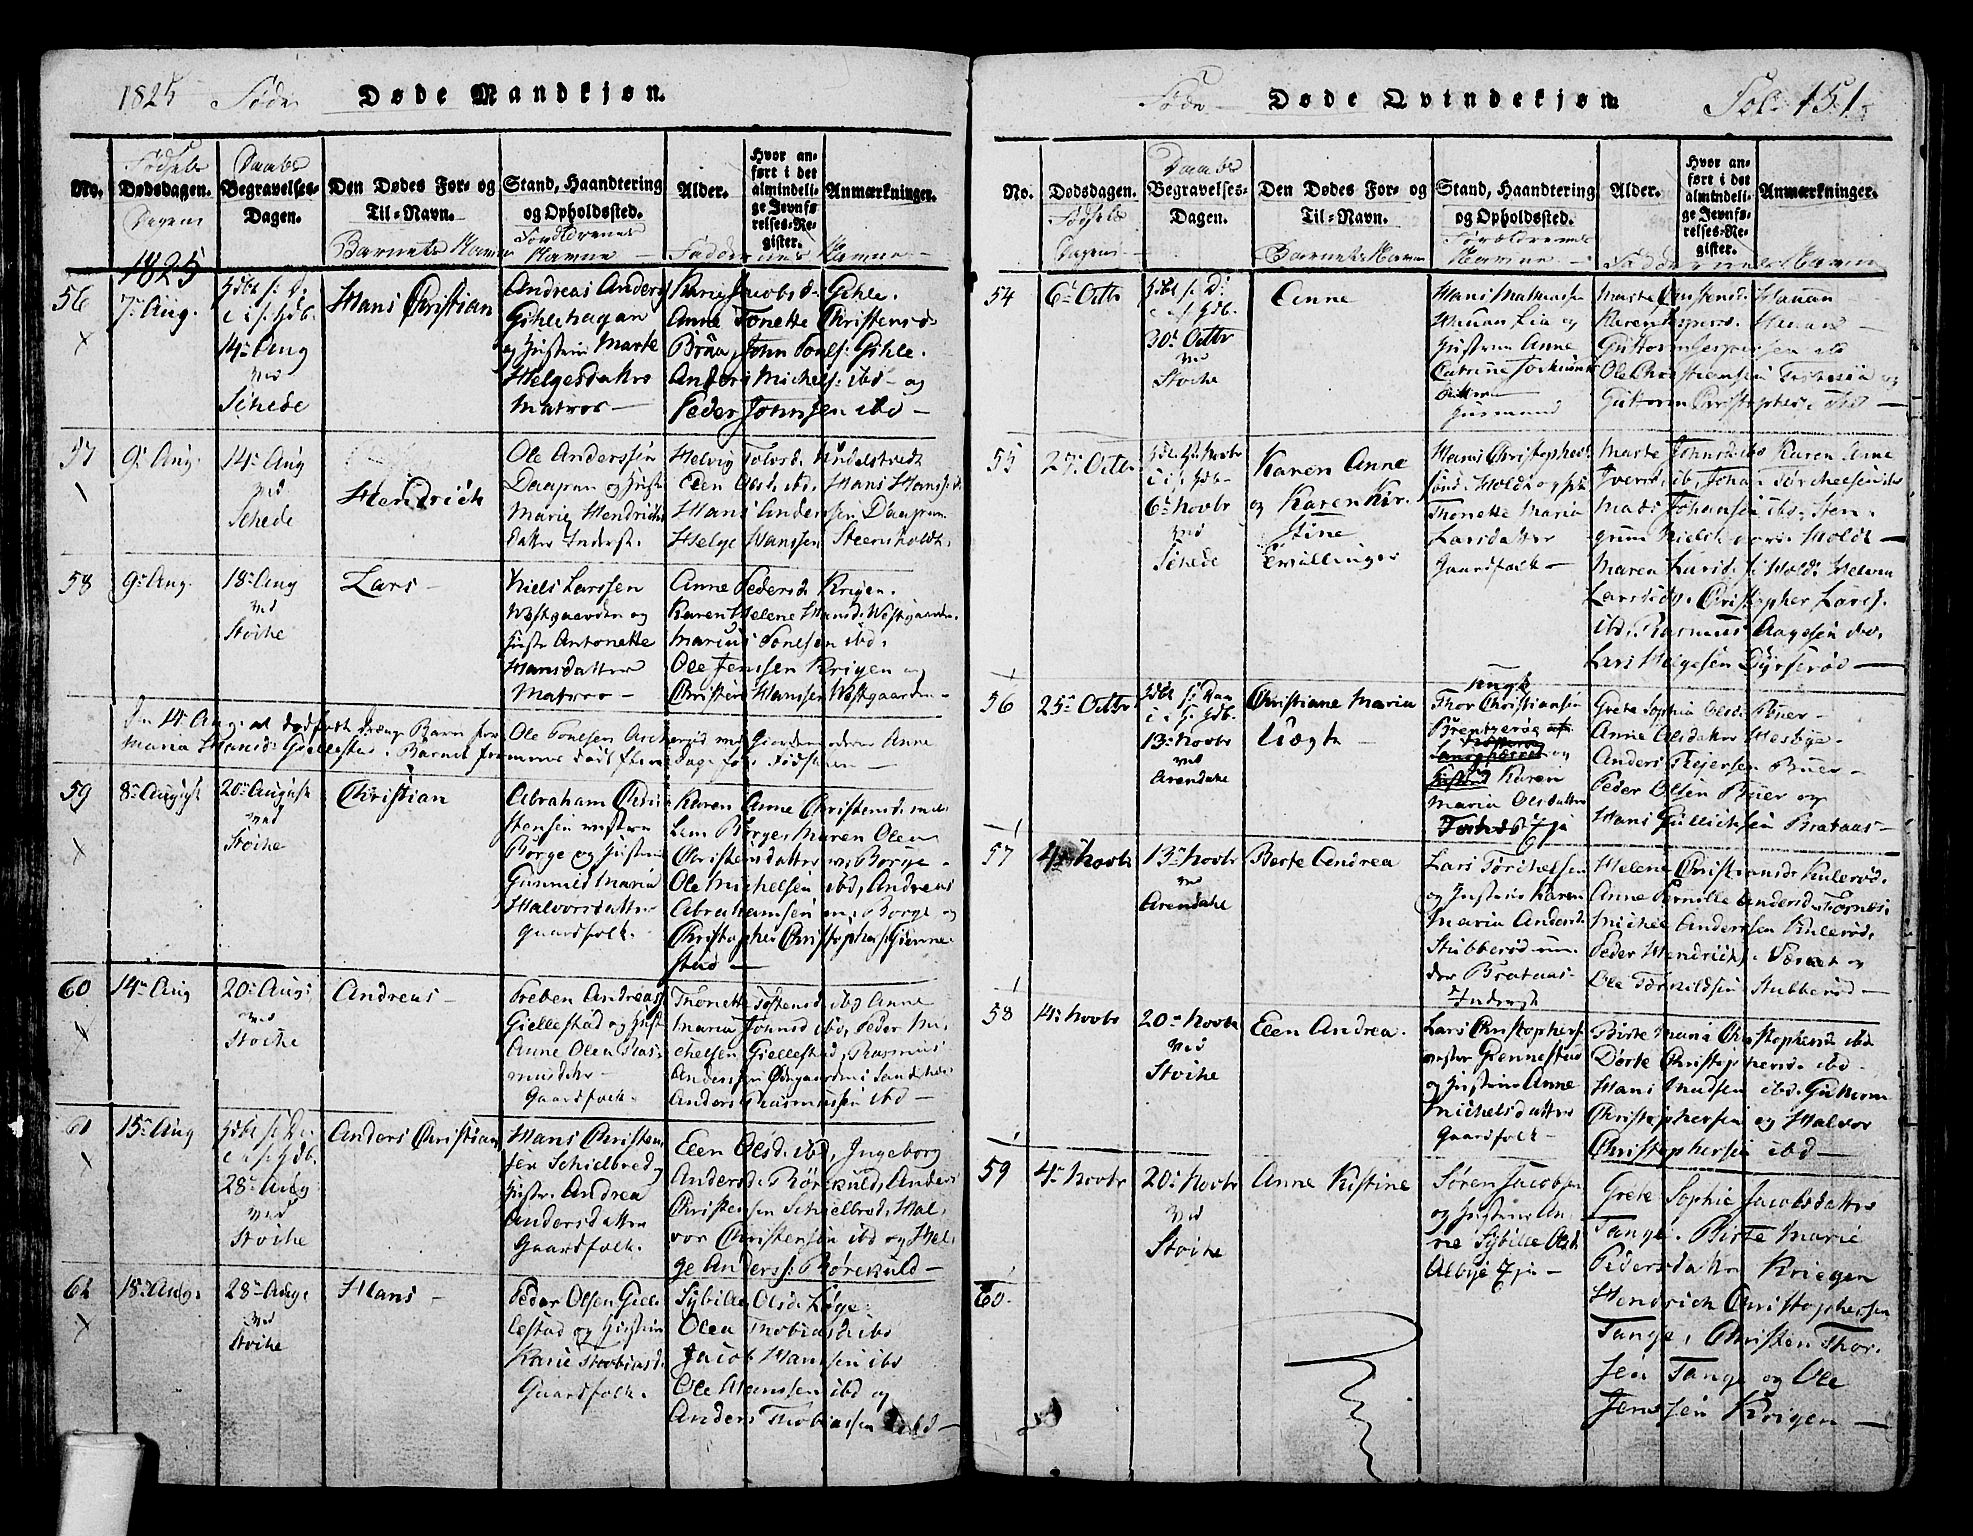 1825 Føde Døde Mandkjøn.
No. Fødsels Dødsdagen. Dagens
Daabs Begravelses-Dagen.
Den Dødes For- og Til-Navn. Barnets Navn
Stand, Haandtering og Opholdssted. Forældrenes Navne
Alder. Faddernes Navne
Hvor anført i det almindelige Jevnførelses-Register.
Anmærkninger.
1825
56
7de Aug.
hjbt s: D.
14de Aug
ved
Schede
Hans Christian
Andreas Anders
Gihlehagan
og Hustru Marte
Helgesdatter
Matros —
Karie Jacobsd. Gihle.
Anne Tonette Christensd.
Bråa, John Poulss: Gihle.
Anders Michels: ibd — og
Peder Johnssen ibd —
57
9de Aug.
14de Aug
ved
Schede
Hendrich
Ole Anderssen
Daapan og Hustr
Marie Hendrichs
datter Inderst.
Helvig Tolvsd. Undelstvedt
Elen Olsd. ibd, Hans Hanss.
Hans Anderssen Daapan
Helge Hanssen Steensholdt.
58
9de Aug.
18de Aug
ved
Stoche
Lars —
Niels Larssen
Westgaarden og
Hustr Antonette
Hansdatter
Matros —
Anne Pedersd. Krigen.
Karen Helene Hansd. Westgaarden.
Marius Poulsen ibd.
Ole Jenssen Krigen og
Christen Hanssen Westgaarden —
Den 14de Aug. et dødfødt drænge Barn for Ole Poulsen
Maria Hansd. Giellestad. Barnet
59
8de August
20de August
ved
Stoche
Christian
Abraham Christensen vestre
Borge og Hustru
Gunnild Maria
Halvorsdatter
Gaardfolk.
Karen Anne Christensd. mellem Borge, Maren Olea
Christensdatter m. Borge —
Ole Michelsen ibd, Andreas
Abrahamsen m. Borge og
Christopher Christophers: Giennestad —
60
14de Aug
20de Aug.
ved
Stoche
Andreas —
Preben Andreas
Giellestad og Hust
Anne Olea Rasmusdatter
Gaardfolk.
Thonette Tostensd ibd, Anne
Maria Johnsd ibd, Peder Michelsen Giellestad, Rasmus
Anderssen Øegaarden i Sandeher
Anders Rasmussen ibd —
61
15de Aug
hjbt s: D.
28de Aug
ved
Stoche
Anders Christian
Hans Christensen Schielbred og
Hustr. Andrea
Andersdatter
Gaardfolk.
Elen Olsd. ibd, Ingeborg
Andersd. Rørekuld, Anders
Christensen Schielbred, Halvor Christensen ibd og Helge Anderss: Rørekuld —
62
18de Aug.
28de Aug.
ved
Stoche
Hans —
Peder Olsen Giellestad og Hustru
Karie Thobiasd.
Gaardfolk.
Sybille Olsd. Løge.
Olea Thobiasd. ibd
Jacob Hanssen ibd
Ole Hanssen ibd og
Anders Thobiassen ibd —
Føde Døde Qvindekjøn. Fol. 151.
No. Dødsdagen. Fødsels Dagens
Daabs Begravelses-Dagen.
Den Dødes For- og Til-Navn. Barnets Navn
Stand, Haandtering og Opholdssted. Forældrenes Navne
Alder. Faddernes Navne
Hvor anført i det almindelige Jevnførelses-Register.
Anmærkninger.
54
6de Octbr
hjbt s: D:
30de Octbr
ved
Stoche
Anne
Hans Mathias
og
Hustru Anne
Catrine
Huusmand
Marte
Karen Jespersd. Hauan —
Guttorm Jespersen ibd
Ole Christiansen og
Guttorm Christophers: ibd —
55
27de Octbr
6de Novbr
ved
Schede
Karen Anne
og Karen Kirstine
Tvillinger
Hans Christophers
Holdt og Hustru
Thonette Maria
Larsdatter
Gaardfolk —
Marte Johnsd. ibd, Karen Anne
Iversd. ib, Johan Torchelsen ibd
Mads Johansen ibd,
Maren Larsd. Holdt, Helvia
Larsd. ibd. Christopher Larss.
ibd, Rasmus Aagesen ibd,
Lars Helgesen Dyrserød —
56
25de Octbr
hjbt s: Dag
13de Novbr
ved
Arendahl
Christiane Maria
Uægte —
Ungk
Thor Christiansen
og
Karen
Maria Olsdatter
Grete Sophia Olsd. Buer —
Anne Olsdatter Wesbye.
Anders Reiersen Buer —
Peder Olsen Buer og
Hans Gullichsen Brataas —
57
4de Novbr
13de Novbr
ved
Arendahl
Berte Andrea
Lars Torchelsen
og Hustru Karen
Maria Andersd.
Stubberød under Brataas
Inderst
Helene Christiansd. Kulerød.
Anne Pernille Andersd.
Michel Anderssen Kulerød,
Peder Hendrichs. og
Ole Torkildsen Stubberød —
58
14de Novbr
20de Novbr
ved
Stoche
Elen Andrea.
Lars Christophers:
vestre Giennestad
og Hustru Anne
Michelsdatter
Gaardfolk —
Birte Maria Christophersd. ibd
Dorte Christophersd. ibd —
Hans Knudsen ibd. Guttorm
Christophersen og Halvor
Christophersen ibd —
59
4de Novbr
20de Novbr
ved
Stoche
Anne Kistine
Søren Jacobsen
og Hustru Anne Sybille Olsd.
Albye —
Grete Sophie Jacobsdatter
Tange. Birte Marie
Pedersdatter Kriegen
Hendrich Christophersen
Tange, Christen Thorsen Tange og Ole
Jenssen Krigen —
60.